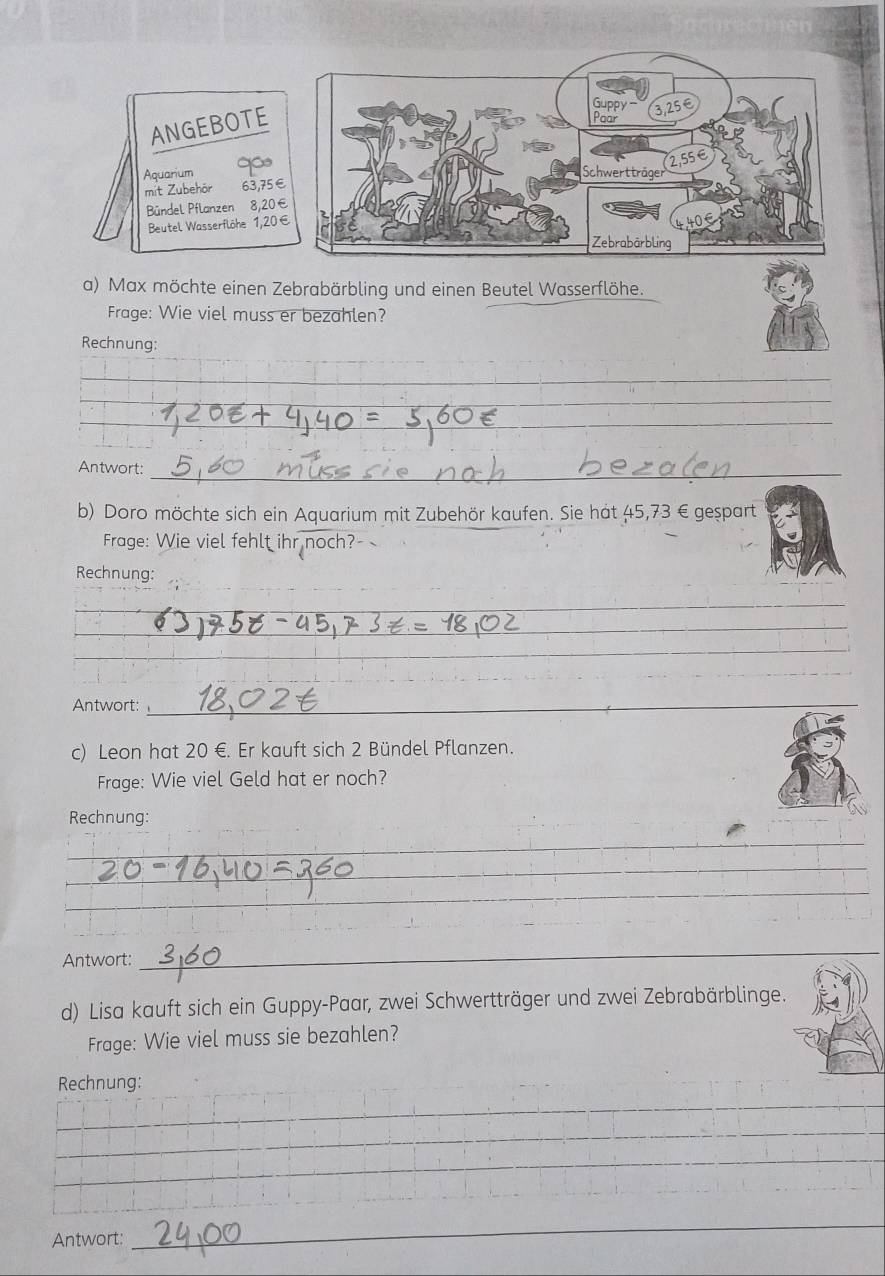 Sachrechnen
ANGEBOTE
Aquarium
mit Zubehör 63,75 €
Bündel Pflanzen 8,20 €
Beutel Wasserflöhe 1,20 €
Guppy-
Paar
3,25 €
Schwertträger
2,55 €
4,40 €
Zebrabärbling
a) Max möchte einen Zebrabärbling und einen Beutel Wasserflöhe.
Frage: Wie viel muss er bezahlen?
Rechnung:
1,20€ + 4,40 = 5,60 €
Antwort: 5,60 müss sie noh bezalen
b) Doro möchte sich ein Aquarium mit Zubehör kaufen. Sie hat 45,73 € gespart
Frage: Wie viel fehlt ihr noch?
Rechnung:
63,75€ - 45,73€ = 18,02
Antwort: 18,02 €
c) Leon hat 20 €. Er kauft sich 2 Bündel Pflanzen.
Frage: Wie viel Geld hat er noch?
Rechnung:
20 - 16,40 = 3,60
Antwort: 3,60
d) Lisa kauft sich ein Guppy-Paar, zwei Schwertträger und zwei Zebrabärblinge.
Frage: Wie viel muss sie bezahlen?
Rechnung:
Antwort: 24,00